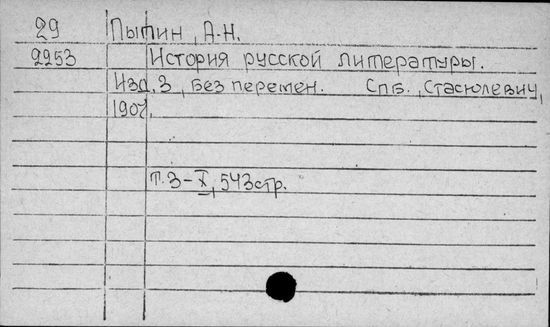 29 Пыпин, А.Н.
2253 История русской литературы.
Изд. 3, без перемен. Спб., Стасюлевич,
1907.
т. 3 - X, 543 стр.